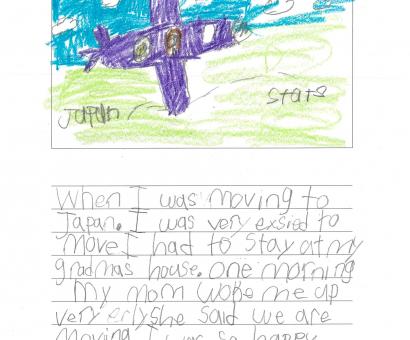 Japan
Stats
When I was moving to
Japan. I was very exsied to
move I had to stay at my
gradmas house. one morning
my mom woke me up
very erly she said we are
moving I was so happy